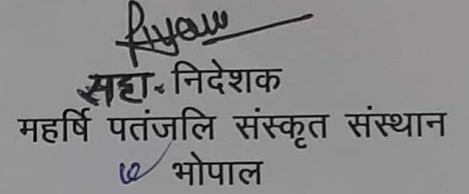 सहा. निदेशक
महर्षि पतंजलि संस्कृत संस्थान
भोपाल